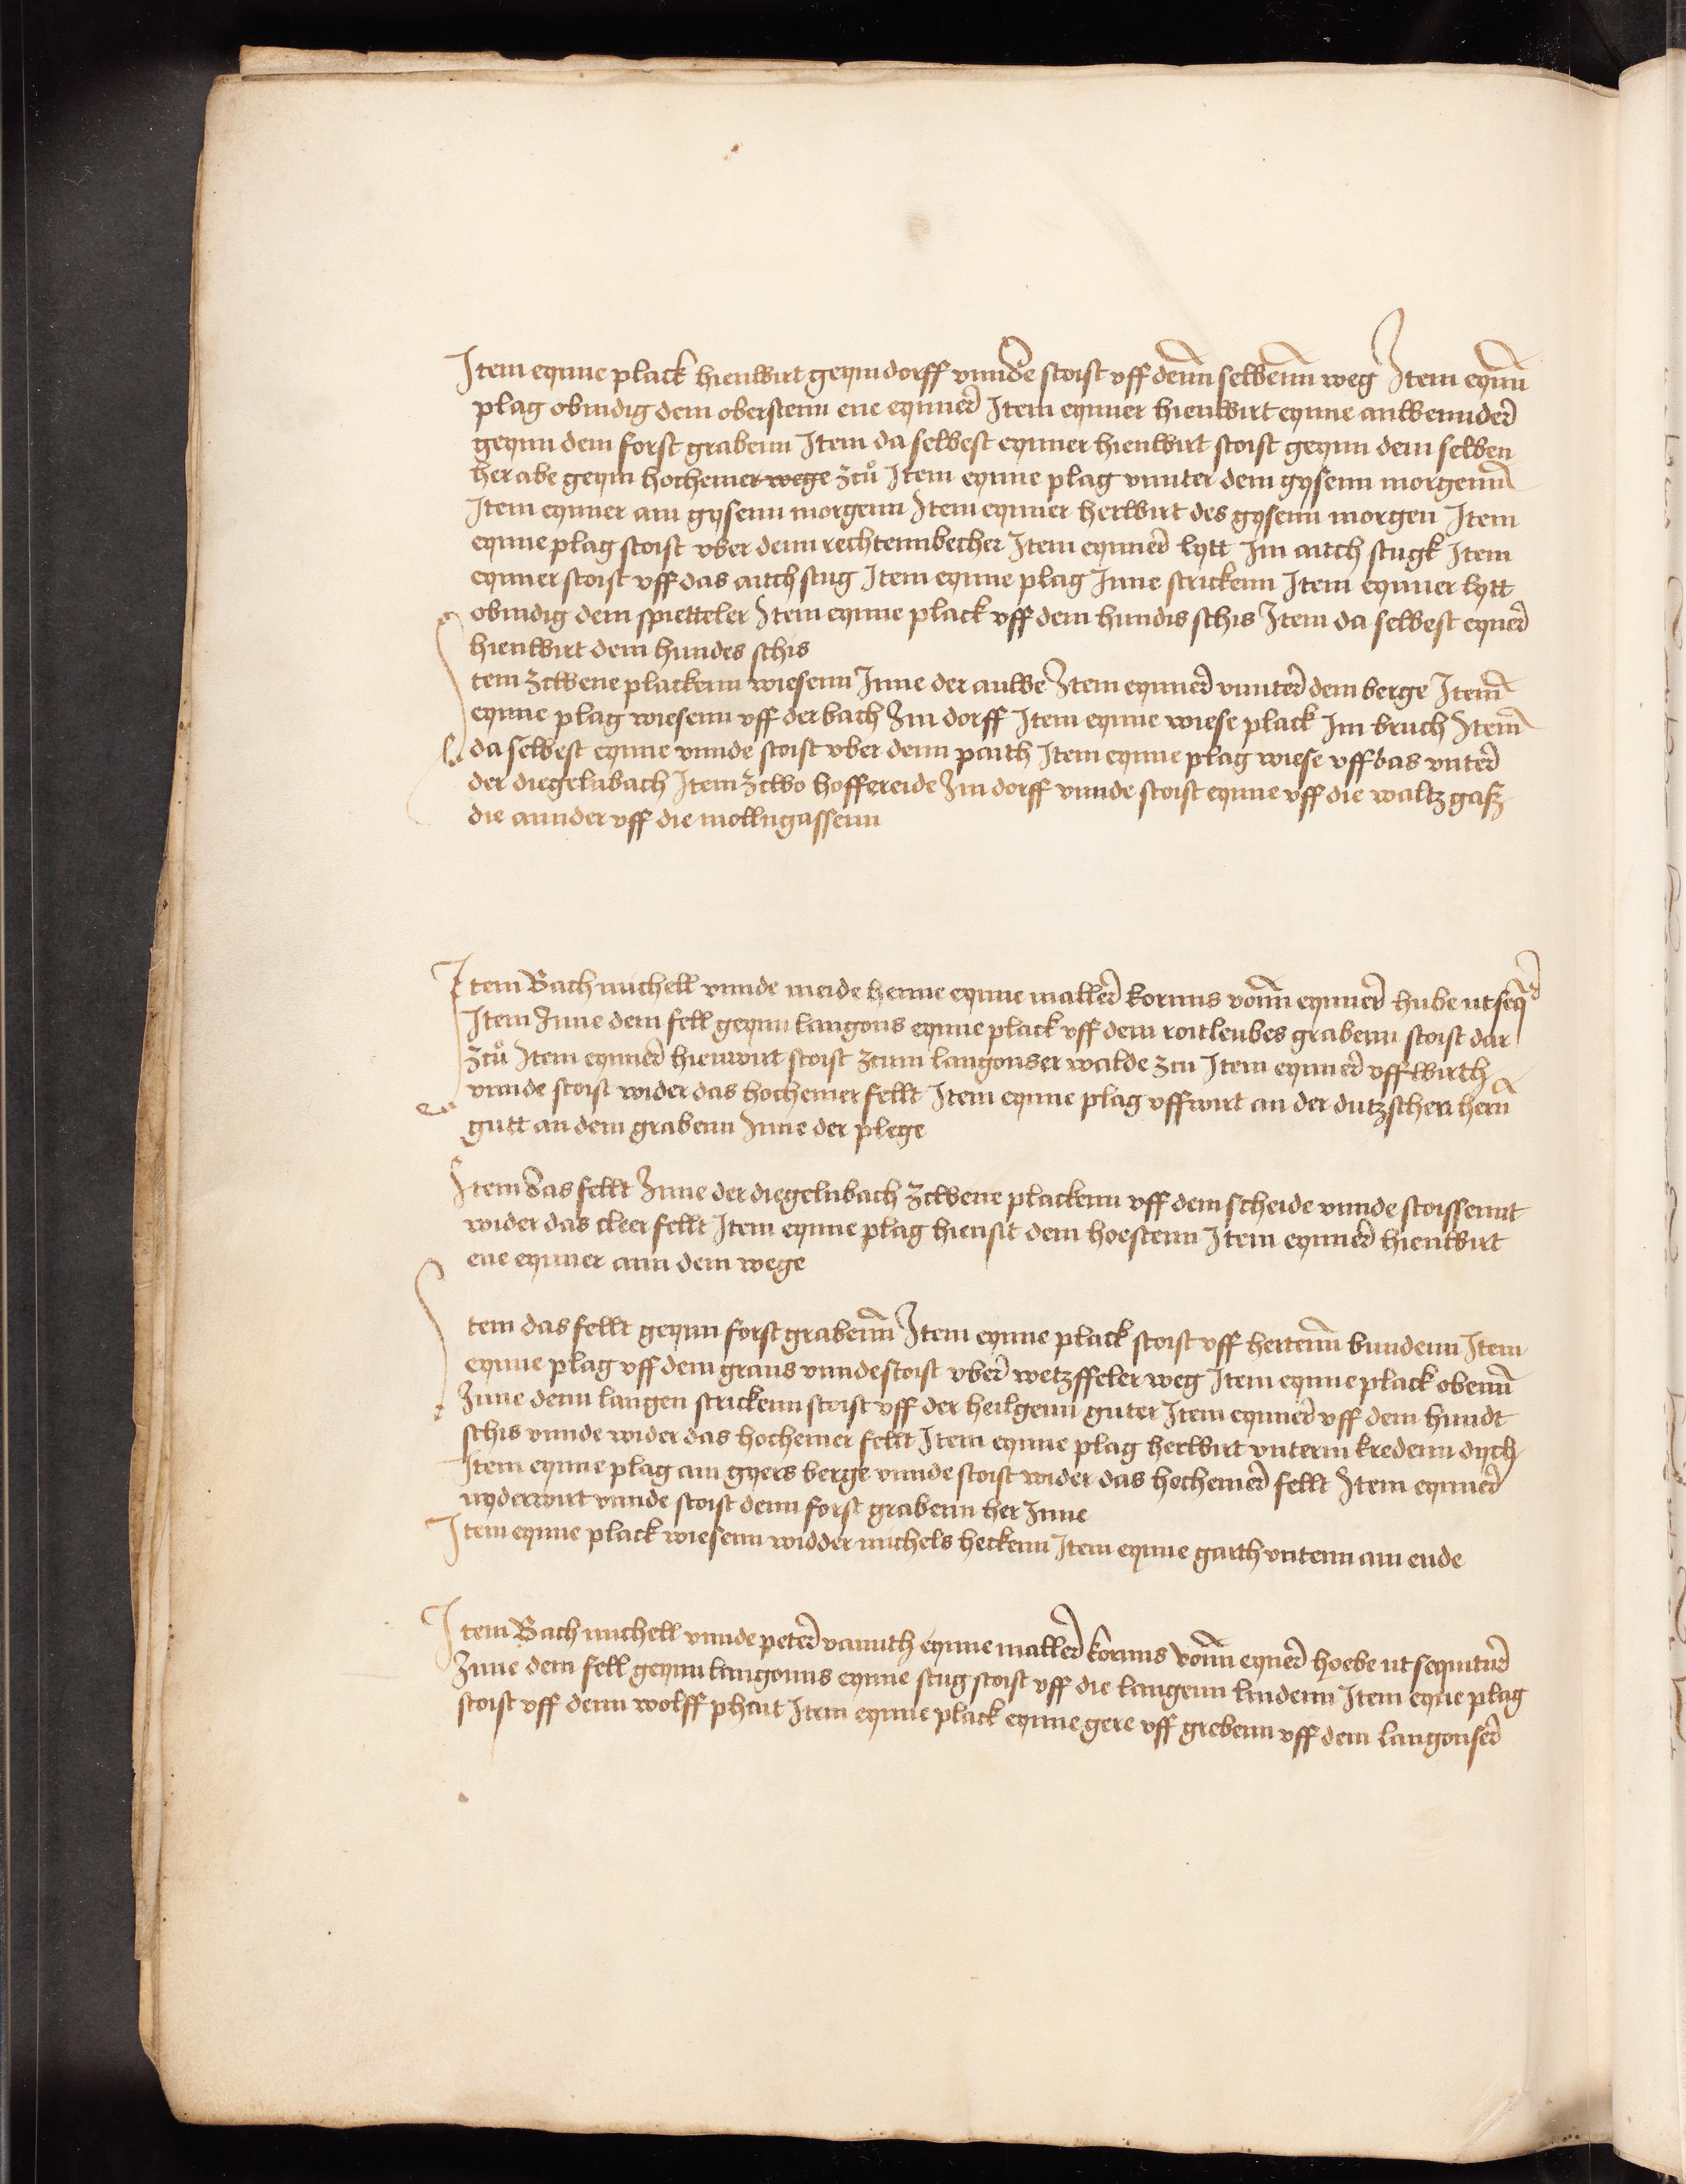 Item eynne plack hienwirt geyn dorff vnnde stoist vff denn selbenn weg Item eynn
plag obindig dem oberstenn ene eynner Item eynner hienwirt eynne anwennder
geynn dem forst grabenn Item da selbest eynner hienwirt stoist geynn dem selben
her abe geyn hochemer wege zců Item eynne plag vnnter dem gysenn morgenn
Item eynner am gysenn morgenn Item eynner herwirt des gysenn morgen Item
eynne plag stoist vber denn rechtennbecher Item eynner lytt Im aitch stugk Item
eynner stoist vff das aitch stug Item eynne plag Inne strickenn Item eynner lytt
obindig dem spietteler Item eynne plack vff dem hundis schis Item da selbest eyner
hienwirt dem hundes schis
Item zcwene plackenn wiesenn Inne der auwe Item eynner vnnter dem berge Item
eynne plag wiesenn vff der bach Im dorff Item eynne wiese plack Im bruch Item
da selbest eynne vnnde stoist vber denn paith Item eynne plag wiese vff bas vnter
der diegelnbach Item zcwo hoffereide Im dorff vnnde stoist eynne vff die waltz gasz
die annder vff die mollngassenn
Item Bach michell vnnde meide henne eynne maller kornns vonn eynner hube ut seqr
Item Inne dem fell geynn langons eynne plack vff dem roitleubes grabenn stoist dar
zců Item eynner hienwirt stoist zcum langonser walde zcu Item eynner vffwirth
vnnde stoist wider das hochemer fellt Item eynne plag vffwirt an der dutzschen hern
gutt an dem grabenn Inne der plege
Item das fellt Inne der diegelnbach zcwene plackenn vff dem scheide vnnde stoissennt
wider das cleer fellt Item eynne plag hiensit dem hoestenn Item eynner hienwirt
ene eynner ann dem wege
Item das fellt geynn forst grabenn Item eynne plack stoist vff hertenn bundenn Item
eynne plag vff dem graus vnnde stoist vber wetzffeler weg Item eynne plack obenn
Inne denn langen strickenn stoist vff der heilgenn guter Item eynner vff dem hundt
schis vnnde wider das hochemer fellt Item eynne plag herwirt vnterm kredenn dych
Item eynne plag am gyers berge vnnde stoist wider das hochemer fellt Item eynner
nyderwirt vnnde stoist denn forst grabenn her Inne
Item eynne plack wiesenn widder michels heckenn Item eynne garth vntenn am ende
Item Bach michell vnnde peter vanuth eynne maller kornns vonn eyner hoebe ut sequitur
Inne dem fell geynn langonns eynne stug stoist vff die langenn lindenn Item eyne plag
stoist vff denn wolff phait Item eynne plack eynne gere vff grebenn vff dem langonser